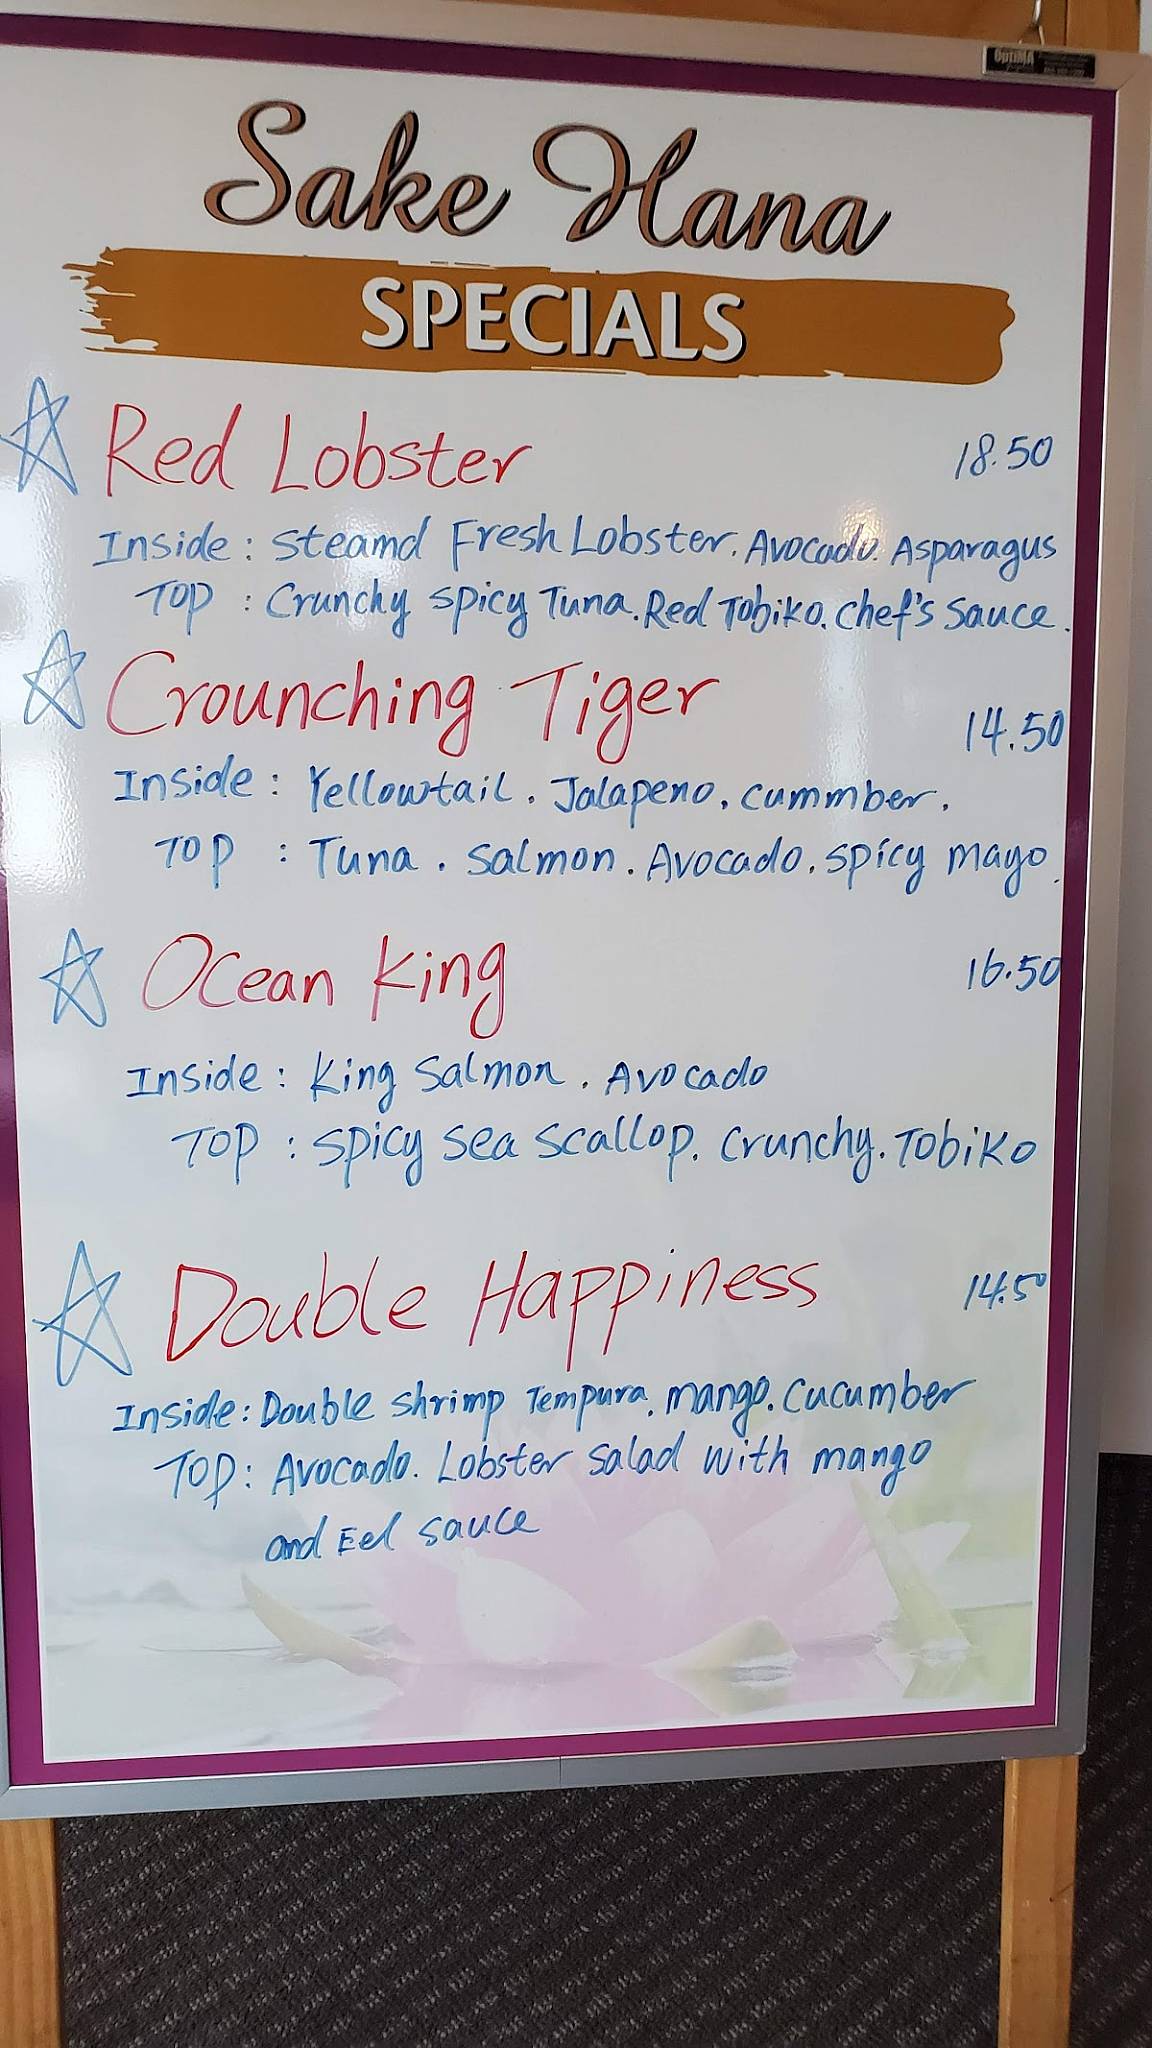 OptiMA
Sake Hana
SPECIALS
Red Lobster 18.50
Inside: Steamd Fresh Lobster. Avocado. Asparagus
Top: Crunchy Spicy Tuna. Red Tobiko. Chef's Sauce.
Crounching Tiger 14.50
Inside: Yellowtail. Jalapeno. cummber.
Top: Tuna. Salmon. Avocado. Spicy mayo.
Ocean King 16.50
Inside: King Salmon. Avocado
Top: Spicy Sea Scallop. Crunchy. Tobiko
Double Happiness 14.50
Inside: Double Shrimp Tempura. mango. Cucumber
Top: Avocado. Lobster Salad with mango
and Eel sauce